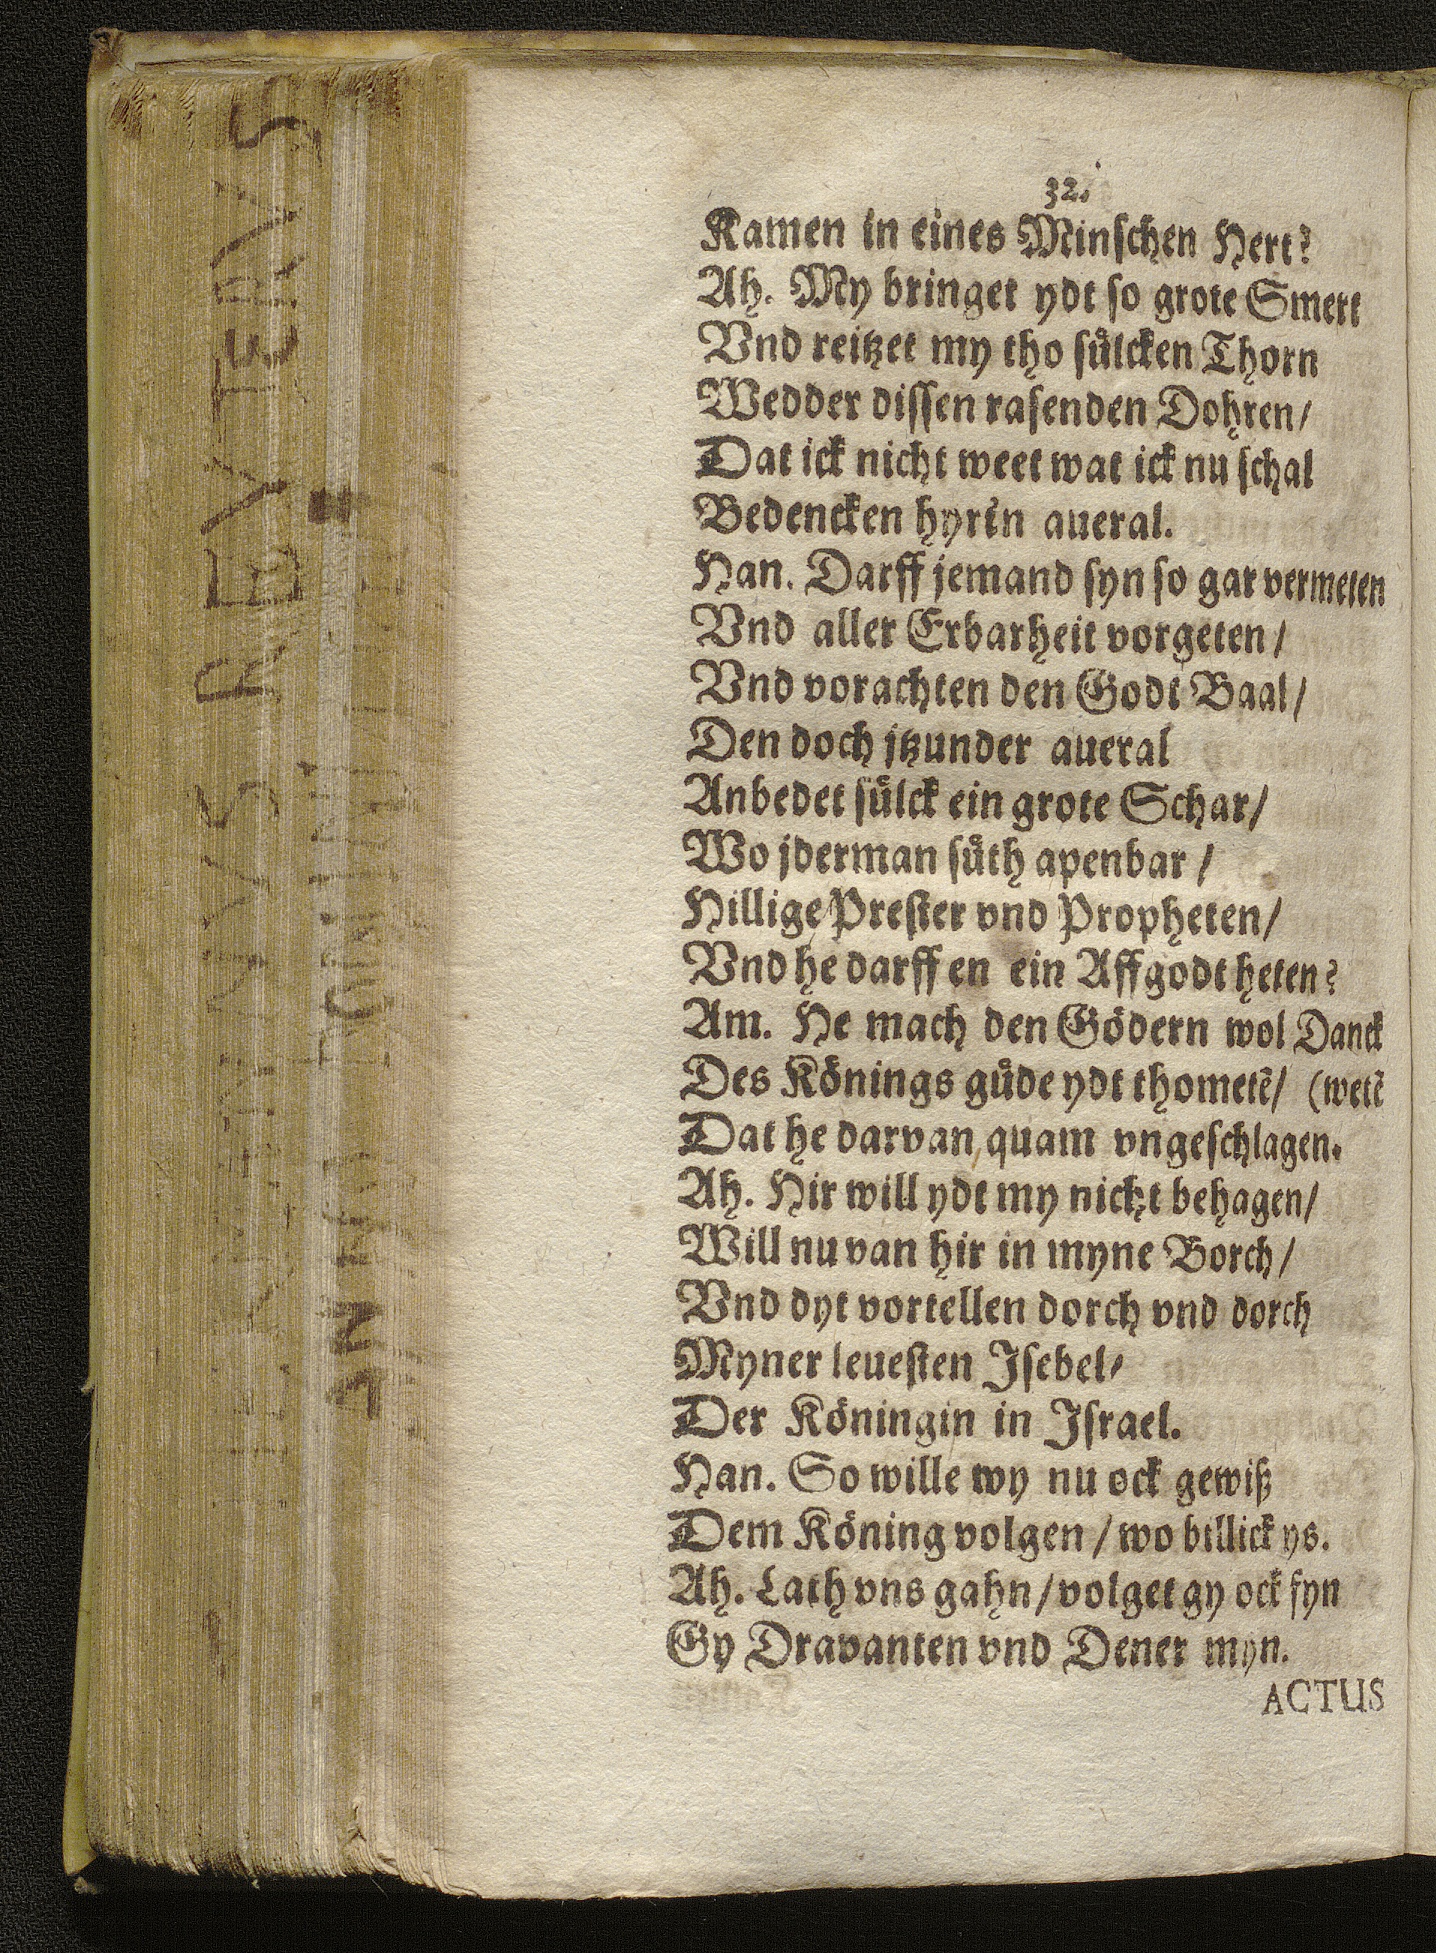 32.
Kamen in eines Minschen Hert?
Ah. My bringet ydt so grote Smert
Vnd reitzet my tho sülcken Thorn
Wedder dissen rasenden Dohren/
Dat ick nicht weet wat ick nu schal
Bedencken hyrin aueral.
Han. Darff jemand syn so gar vermeten
Vnd aller Erbarheit vorgeten/
Vnd vorachten den Godt Baal/
Den doch jtzunder aueral
Anbedet sülck ein grote Schar/
Wo jderman süth apenbar/
Hillige Prester vnd Propheten/
Vnd he darff en ein Affgodt heten?
Am. He mach den Gödern wol Danck
Des Könings güde ydt thometē/ (wetē
Dat he darvan quam vngeschlagen.
Ah. Hir will ydt my nicht behagen/
Will nu van hir in myne Borch/
Vnd dyt vortellen dorch vnd dorch
Myner leuesten Jsebel/
Der Köningin in Jsrael.
Han. So wille wy nu ock gewiß
Dem Köning volgen/wo billick ys.
Ah. Lath vns gahn/volget gy ock fyn
Gy Dravanten vnd Dener myn.
ACTUS
REVTERVS